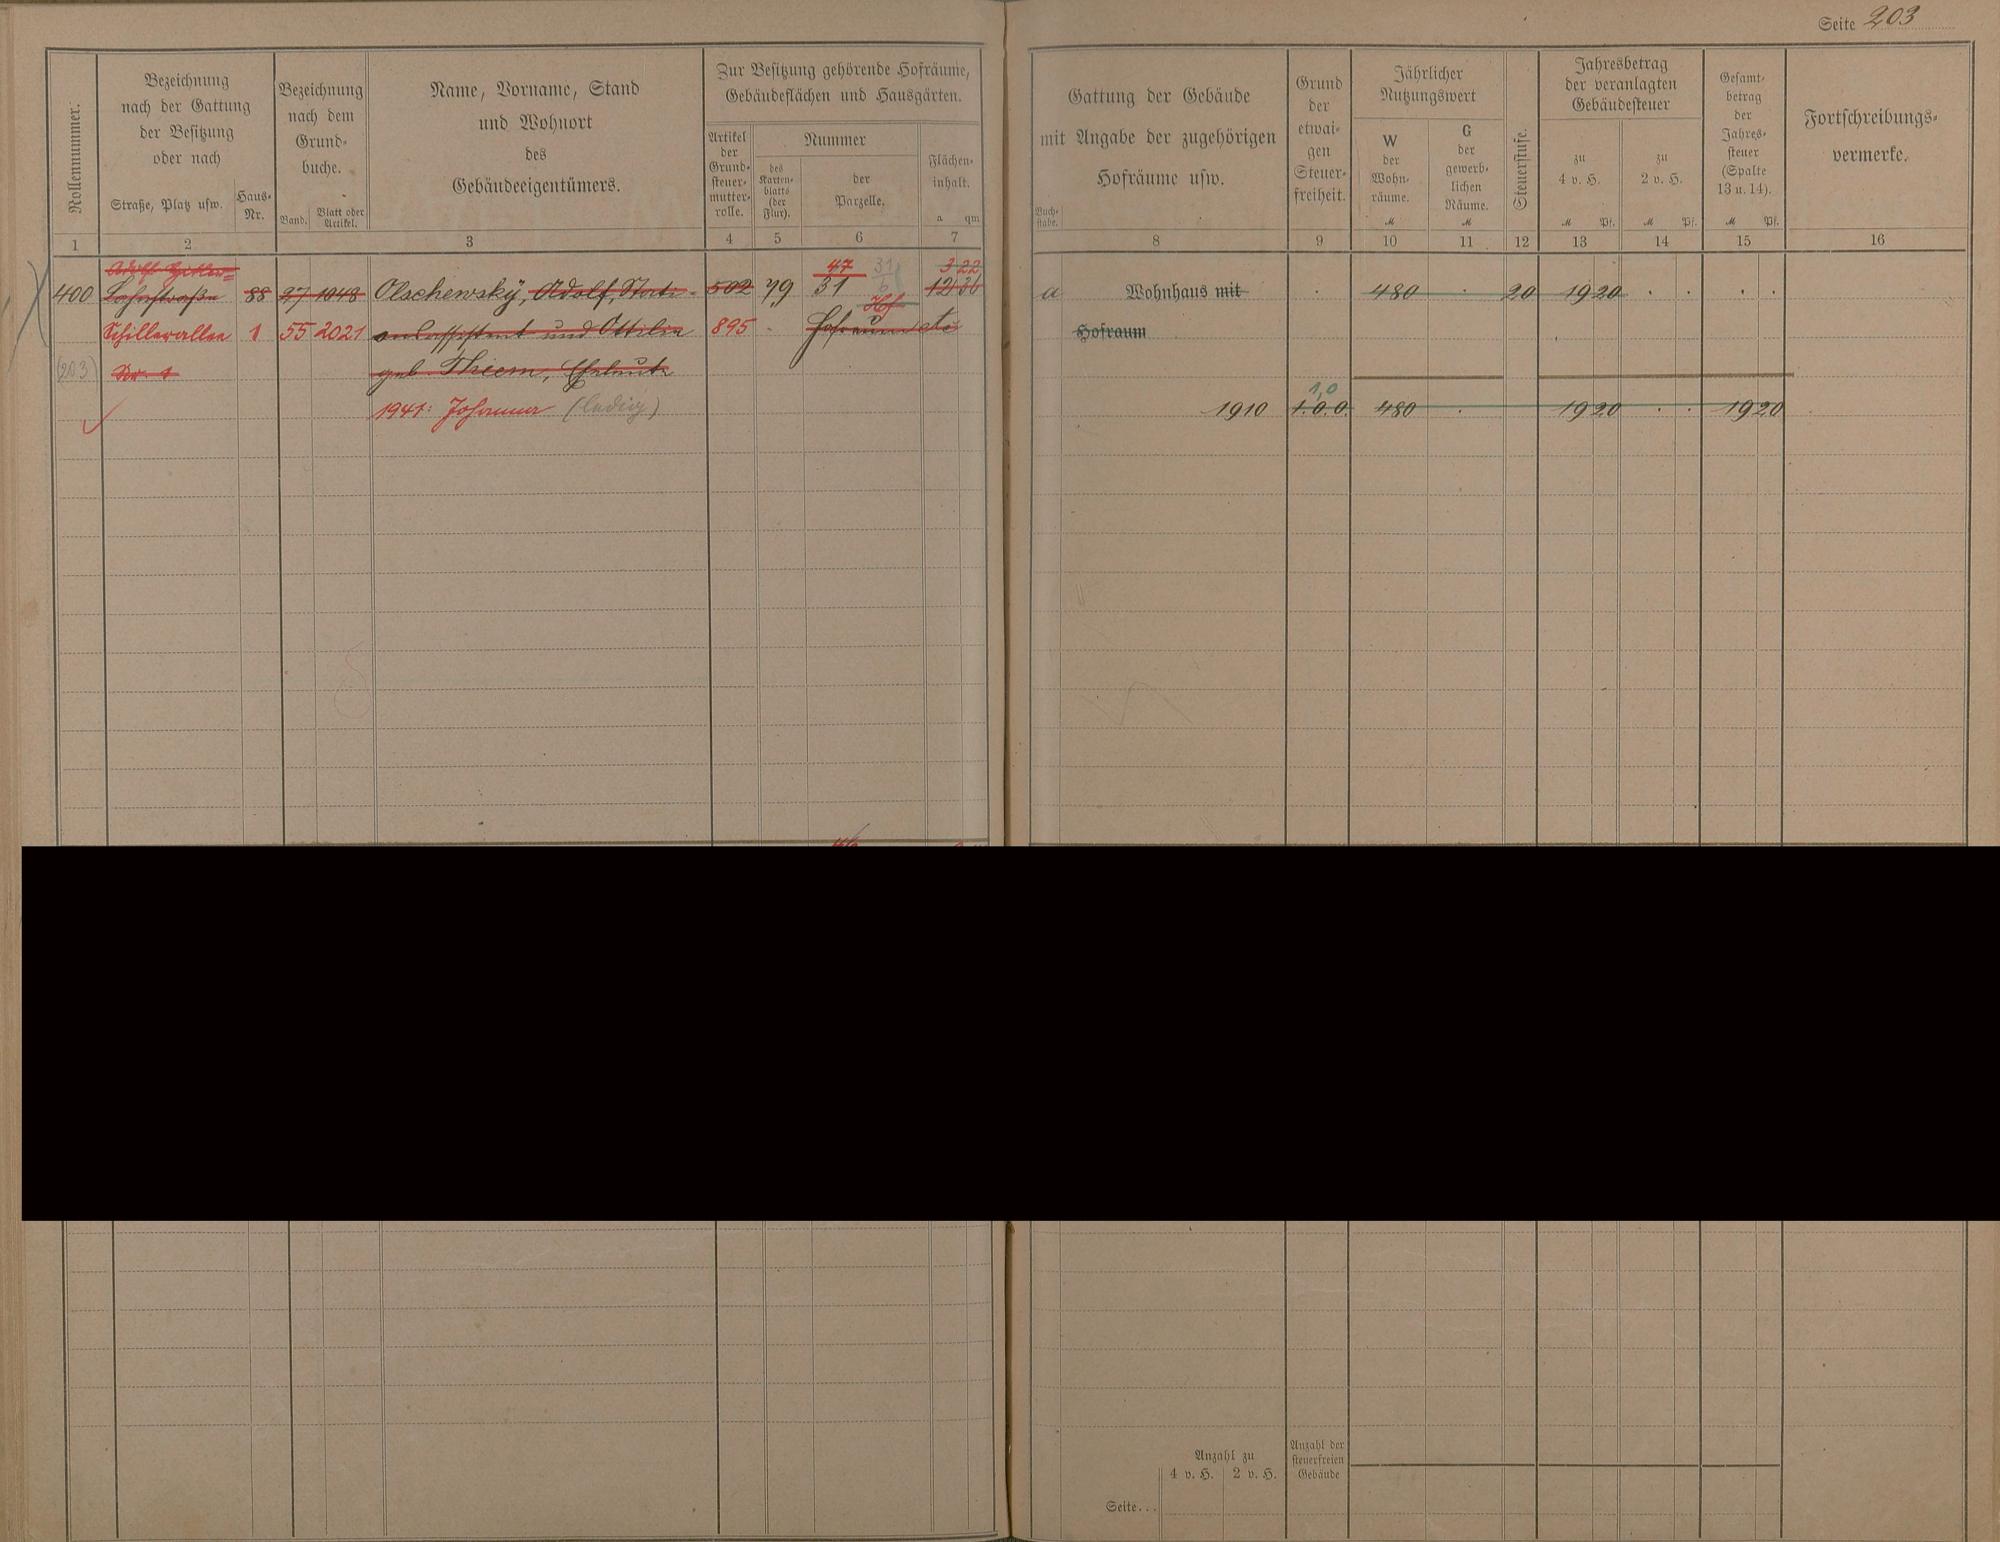 Seite 203
Rollennummer.
Bezeichnung
nach der Gattung
der Besitzung
oder nach
Straße, Platz usw.
Haus-
Nr.
Bezeichnung
nach dem
Grund-
buche.
Band.
Blatt oder
Artikel.
Name, Vorname, Stand
und Wohnort
des
Gebäudeeigentümers.
Zur Besitzung gehörende Hofräume,
Gebäudeflächen und Hausgärten.
Artikel
der
Grund-
steuer-
mutter-
rolle.
Nummer
des
Karten-
blatts
(der
Flur).
der
Parzelle.
Flächen-
inhalt.
a qm
Buch-
stabe.
Gattung der Gebäude
mit Angabe der zugehörigen
Hofräume usw.
Grund
der
etwai-
gen
Steuer-
freiheit.
Jährlicher
Nutzungswert
W
der
Wohn-
räume.
M
G
der
gewerb-
lichen
Räume.
M
Steuerstufe.
Jahresbetrag
der veranlagten
Gebäudesteuer
zu
4 v. H.
M Pf.
zu
2 v. H.
M Pf.
Gesamt-
betrag
der
Jahres-
steuer
(Spalte
13 u. 14).
M Pf.
Fortschreibungs-
vermerke.
1 2 3 4 5 6 7 8 9 10 11 12 13 14 15 16
Adolf Hitler-
47 31/6 3 22
400 88 27 1048 Olschewsky, Adolf, Stati- 502 79 31 12 36 a Wohnhaus mit 480 20 19 20
Hof
Schillerallee 1 55 2021 onsassistent und Ottilie 895 Hofraum etc Hofraum
(203) Nr. 1 geb. Thiem, Eheleute
1941: Johanna (ledig) 1910 1.0.0. 480 19 20 19 20
1,0
Anzahl zu
4 v. H. 2 v. H.
Anzahl der
steuerfreien
Gebäude
Seite...